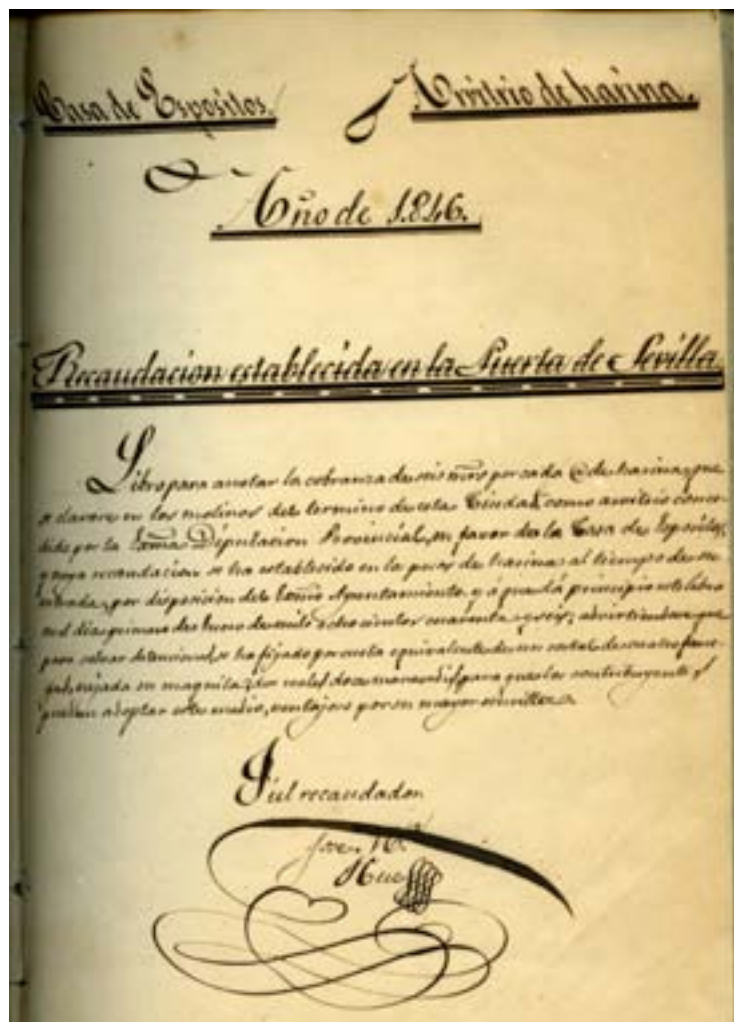 Casa de Espositos. Arvitrio de harina.
Año de 1.846.
Recaudacion establecida en la Puerta de Sevilla
Libro para anotar la cobranza de seis mrs por cada @ de harina, que
se elavore en los molinos del termino de esta Ciudad, como arvitrio conce-
dido por la Exma Diputacion Provincial, en favor de la Casa de Espositos,
y cuya recaudacion se ha establecido en la de harina al tiempo de su
entrada, por disposicion del Exmo Ayuntamiento, y á que dá principio este libro
en el dia primero de Enero de mil ocho cientos cuarenta y seis; advirtiendose que
para evitar detenciones, se ha fijado por cuota equivalente de un costal de cuatro fane-
gas, en maquila, dos reales doce maravedis, para que los contribuyentes
puedan adoptar este medio, ventajoso por su mayor
Fiel recaudador
Jose Ma